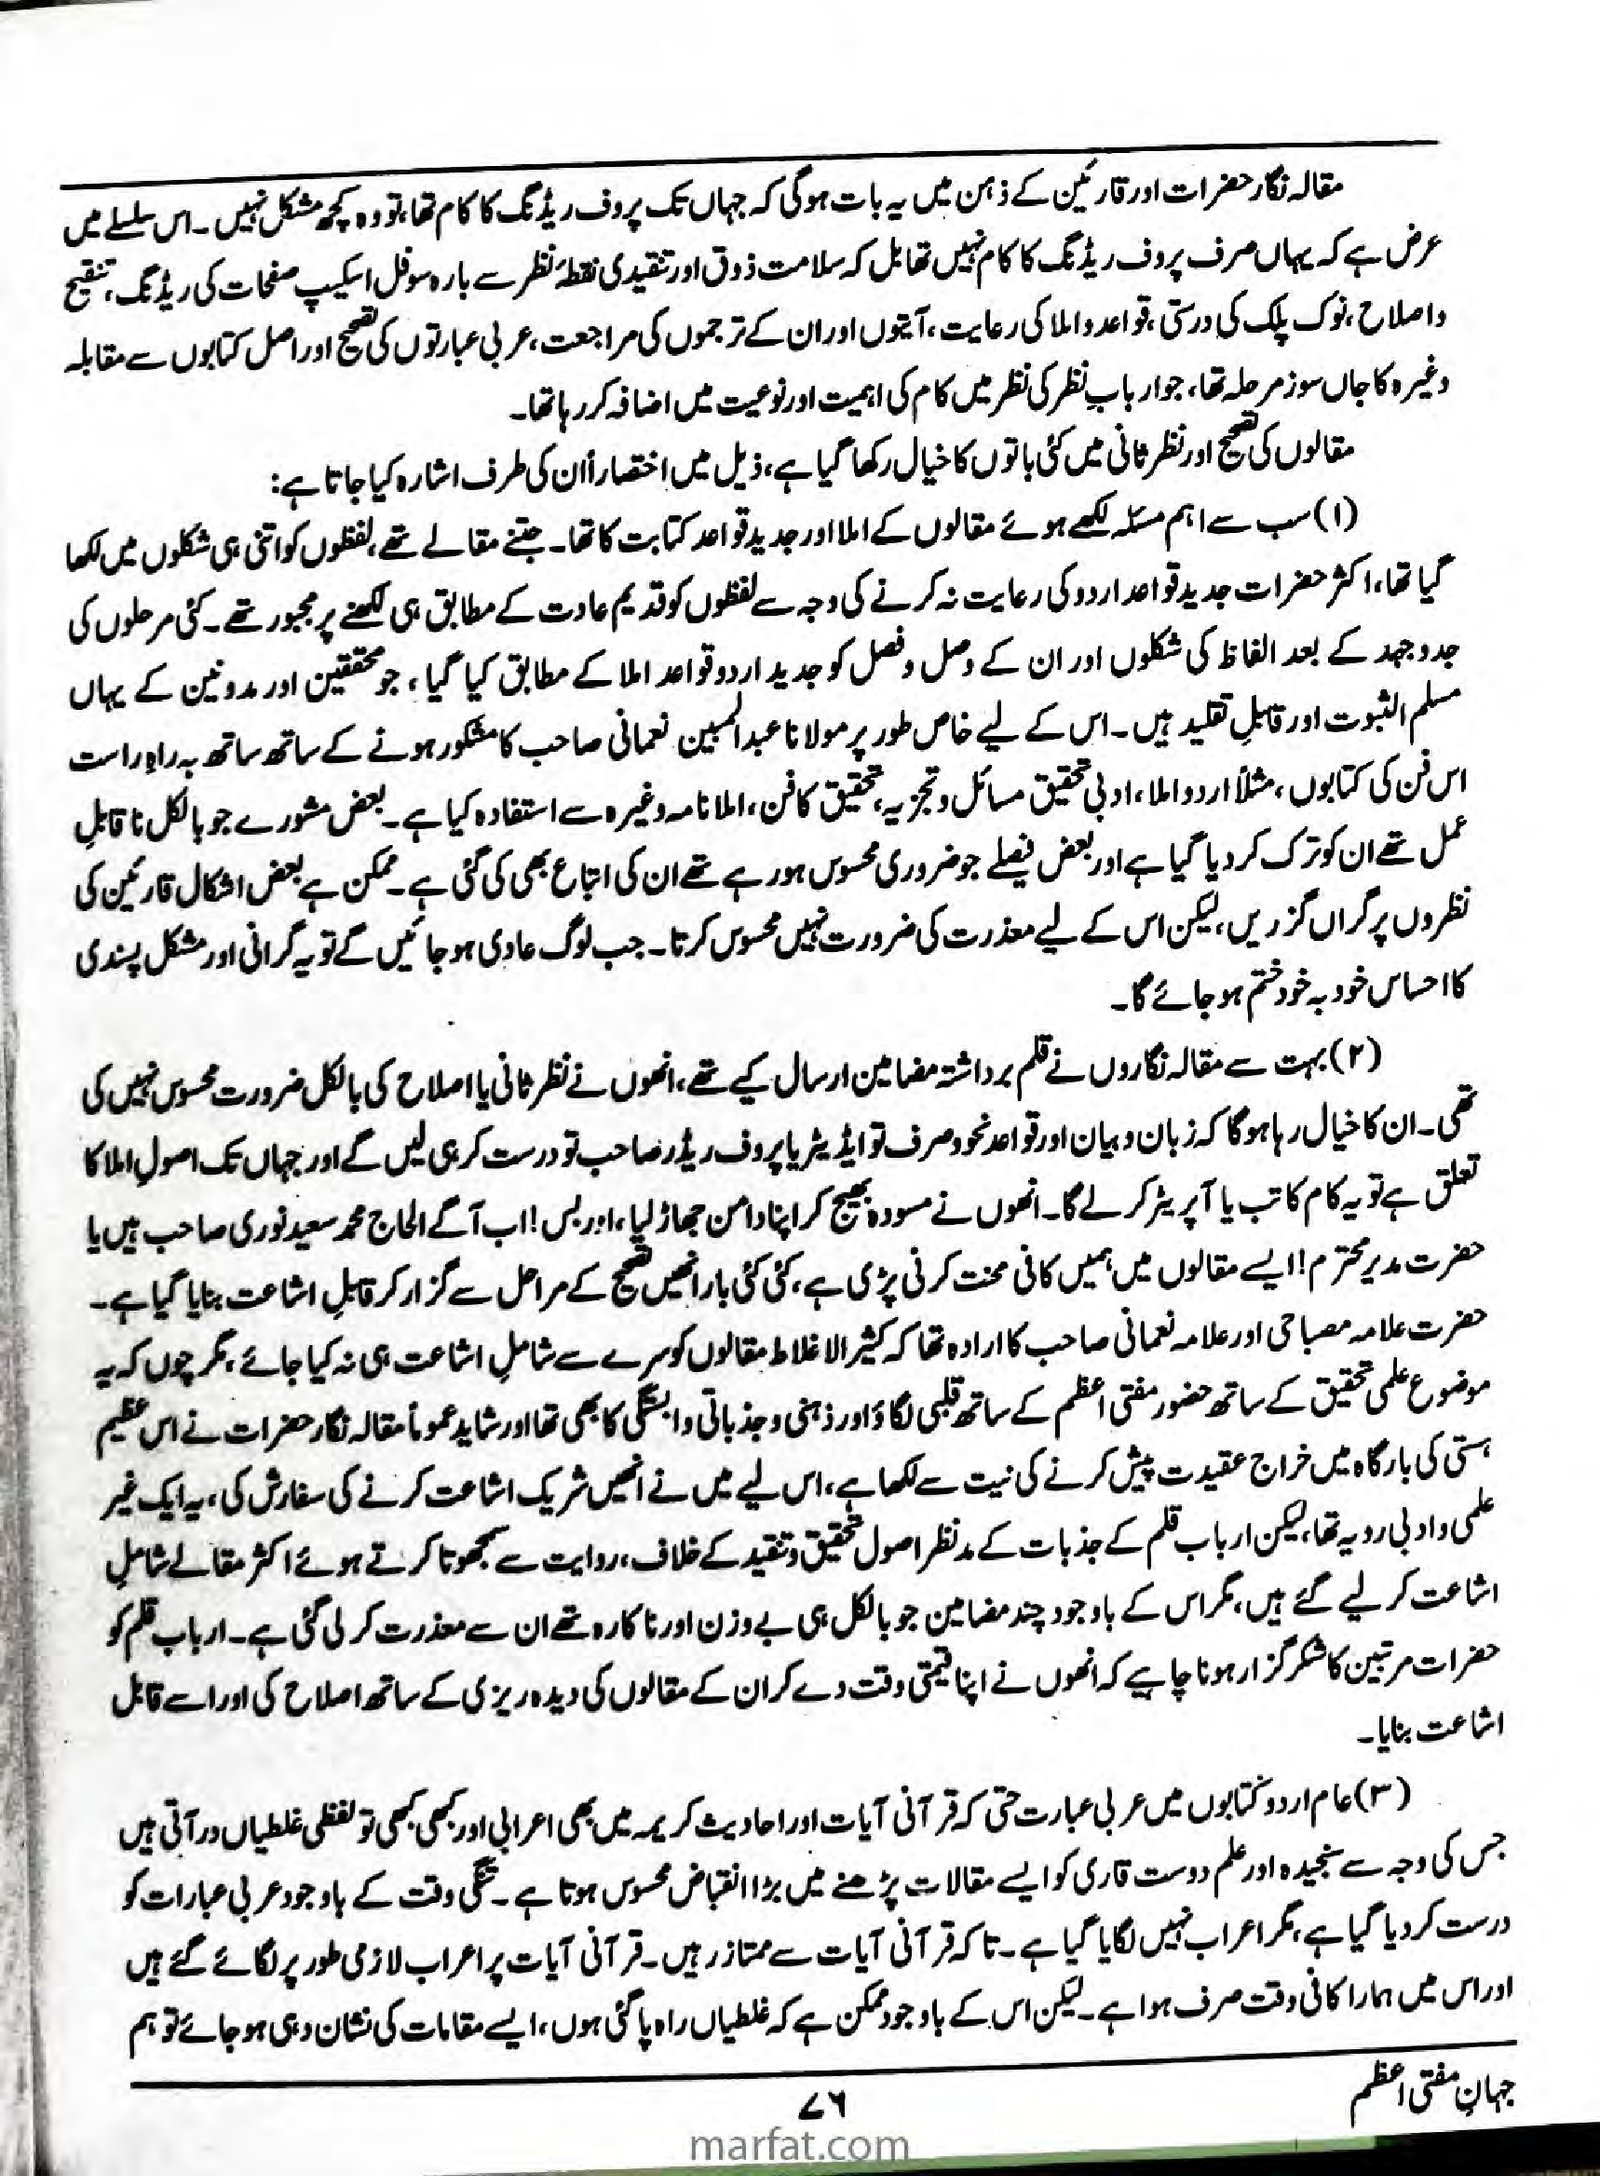 مقالہ نگار حضرات اور قارئین کے ذہن میں یہ بات ہوگی کہ جہاں تک پروف ریڈنگ کا کام تھا، تو وہ کچھ مشکل نہیں۔ اس سلسلے میں
عرض ہے کہ یہاں صرف پروف ریڈنگ کا کام نہیں تھا بل کہ سلامت ذوق اور تنقیدی نقطۂ نظر سے بارہ سو فل اسکیپ صفحات کی ریڈنگ، تنقیح
و اصلاح، نوک پلک کی درستی، قواعد و املا کی رعایت، آیتوں اور ان کے ترجموں کی مراجعت، عربی عبارتوں کی تصحیح اور اصل کتابوں سے مقابلہ
وغیرہ کا جاں سوز مرحلہ تھا، جو ارباب نظر کی نظر میں کام کی اہمیت اور نوعیت میں اضافہ کر رہا تھا۔
مقالوں کی تصحیح اور نظر ثانی میں کئی باتوں کا خیال رکھا گیا ہے، ذیل میں اختصاراً ان کی طرف اشارہ کیا جاتا ہے:
(۱) سب سے اہم مسئلہ لکھے ہوئے مقالوں کے املا اور جدید قواعد کتابت کا تھا۔ جتنے مقالے تھے، لفظوں کو اتنی ہی شکلوں میں لکھا
گیا تھا، اکثر حضرات جدید قواعد اردو کی رعایت نہ کرنے کی وجہ سے لفظوں کو قدیم عادت کے مطابق ہی لکھنے پر مجبور تھے۔ کئی مرحلوں کی
جدوجہد کے بعد الفاظ کی شکلوں اور ان کے وصل و فصل کو جدید اردو قواعد املا کے مطابق کیا گیا، جو محققین اور مدونین کے یہاں
مسلم الثبوت اور قابلِ تقلید ہیں۔ اس کے لیے خاص طور پر مولانا عبدالمبین نعمانی صاحب کا مشکور ہونے کے ساتھ ساتھ بہ راہِ راست
اس فن کی کتابوں، مثلاً اردو املا، ادبی تحقیق مسائل و تجزیہ، تحقیق کا فن، املا نامہ وغیرہ سے استفادہ کیا ہے۔ بعض مشورے جو بالکل ناقابلِ
عمل تھے ان کو ترک کر دیا گیا ہے اور بعض فیصلے جو ضروری محسوس ہو رہے تھے ان کی اتباع بھی کی گئی ہے۔ ممکن ہے بعض اشکال قارئین کی
نظروں پر گراں گزریں، لیکن اس کے لیے معذرت کی ضرورت نہیں محسوس کرتا۔ جب لوگ عادی ہو جائیں گے تو یہ گرانی اور مشکل پسندی
کا احساس خود بہ خود ختم ہو جائے گا۔
(۲) بہت سے مقالہ نگاروں نے قلم برداشتہ مضامین ارسال کیے تھے، انھوں نے نظر ثانی یا اصلاح کی بالکل ضرورت محسوس نہیں کی
تھی۔ ان کا خیال رہا ہوگا کہ زبان و بیان اور قواعد نحو و صرف تو ایڈیٹر یا پروف ریڈر صاحب تو درست کر ہی لیں گے اور جہاں تک اصولِ املا کا
تعلق ہے تو یہ کام کاتب یا آپریٹر کر لے گا۔ انھوں نے مسودہ بھیج کر اپنا دامن جھاڑ لیا، اور بس! اب آگے الحاج محمد سعید نوری صاحب ہیں یا
حضرت مدیر محترم! ایسے مقالوں میں ہمیں کافی محنت کرنی پڑی ہے، کئی کئی بار انھیں تصحیح کے مراحل سے گزار کر قابلِ اشاعت بنایا گیا ہے۔
حضرت علامہ مصباحی اور علامہ نعمانی صاحب کا ارادہ تھا کہ کثیر الاغلاط مقالوں کو سرے سے شاملِ اشاعت ہی نہ کیا جائے، مگر چوں کہ یہ
موضوع علمی تحقیق کے ساتھ حضور مفتی اعظم کے ساتھ قلبی لگاؤ اور ذہنی و جذباتی وابستگی کا بھی تھا اور شاید عموماً مقالہ نگار حضرات نے اس عظیم
ہستی کی بارگاہ میں خراج عقیدت پیش کرنے کی نیت سے لکھا ہے، اس لیے میں نے انھیں شریک اشاعت کرنے کی سفارش کی، یہ ایک غیر
علمی و ادبی رویہ تھا، لیکن ارباب قلم کے جذبات کے مدنظر اصول تحقیق و تنقید کے خلاف، روایت سے سمجھوتا کرتے ہوئے اکثر مقالے شاملِ
اشاعت کر لیے گئے ہیں، مگر اس کے باوجود چند مضامین جو بالکل ہی بے وزن اور ناکارہ تھے ان سے معذرت کر لی گئی ہے۔ ارباب قلم کو
حضرات مرتبین کا شکر گزار ہونا چاہیے کہ انھوں نے اپنا قیمتی وقت دے کر ان کے مقالوں کی دیدہ ریزی کے ساتھ اصلاح کی اور اسے قابل
اشاعت بنایا۔
(۳) عام اردو کتابوں میں عربی عبارت حتیٰ کہ قرآنی آیات اور احادیث کریمہ میں بھی اعرابی اور کبھی کبھی تو لفظی غلطیاں در آتی ہیں
جس کی وجہ سے سنجیدہ اور علم دوست قاری کو ایسے مقالات پڑھنے میں بڑا انقباض محسوس ہوتا ہے۔ تنگی وقت کے باوجود عربی عبارات کو
درست کر دیا گیا ہے، مگر اعراب نہیں لگایا گیا ہے۔ تاکہ قرآنی آیات سے ممتاز رہیں۔ قرآنی آیات پر اعراب لازمی طور پر لگائے گئے ہیں
اور اس میں ہمارا کافی وقت صرف ہوا ہے۔ لیکن اس کے باوجود ممکن ہے کہ غلطیاں راہ پا گئی ہوں، ایسے مقامات کی نشان دہی ہو جائے تو ہم
جہانِ مفتی اعظم
۷۶
marfat.com